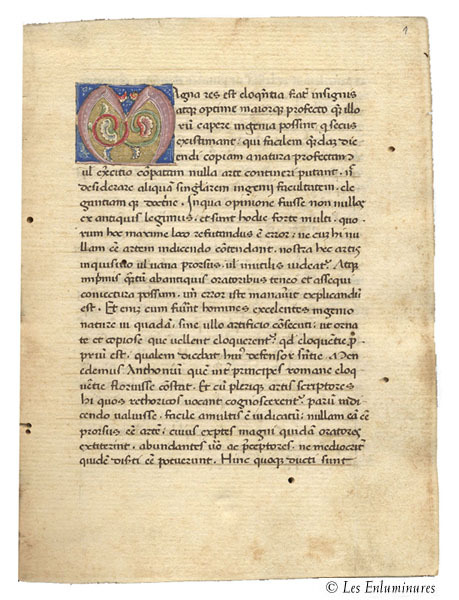 1
Magna res est eloq̃ntia fr̃at insignis
atq; optime maiorq; profecto q̃ illo
rũ capere ingenia possint q̃ secus
existimant; qui facilem q̃dã dic
endi copiam a natura profectam
ul exc̃itio copatam nulla arte contineri putant, ñ
desiderare aliquã singl̃arem ingenij facultatem, ele
gantiam q; doct̃ne. In qua opinione fuisse non nullos
ex antiquis legimus, et sunt hodie forte multi, quo
rum hoc maxime loco refutandus ẽ error; ne cũ hi nu
llam cẽ artem in dicendo cõtendant, nostra hec artis
inquisitio ul uana prorsus, ul inutilis uideat̃. Atq;
inp̃mis q̃ntũ ab antiquis oratoribus teneo et assequi
coniectura possum, uñ error iste manauit explicandũ
est. Et enĩ cum fuerĩt homines excelentes ingenio
nature ui quadã, sine ullo artificio cõsecuti; ut orna
te et copiose que uellent eloquerent̃; qd eloquẽtie, p̃
priũ est, qualem dicebat huĩ defensor sñtie. Men
edemus Anthoniũ quẽ int̃ principes romane eloq̃
uẽtie floruisse cõstat. Et cũ pleriq; artis scriptores
hi quos rethoricos uocant cognoscerent̃ parũ in di
cendo ualuisse, facile a multis ẽ iudicatũ; nullam eã cẽ
prorsus cẽ arte; cuius exp̃tes magni quidã oratores
extiterint, abundantes ũo ac p̃ceptores, ne mediocrit̃
quidẽ dis̃ti cẽ potuerunt. Hinc quoq; ducti sunt
© Les Enluminures